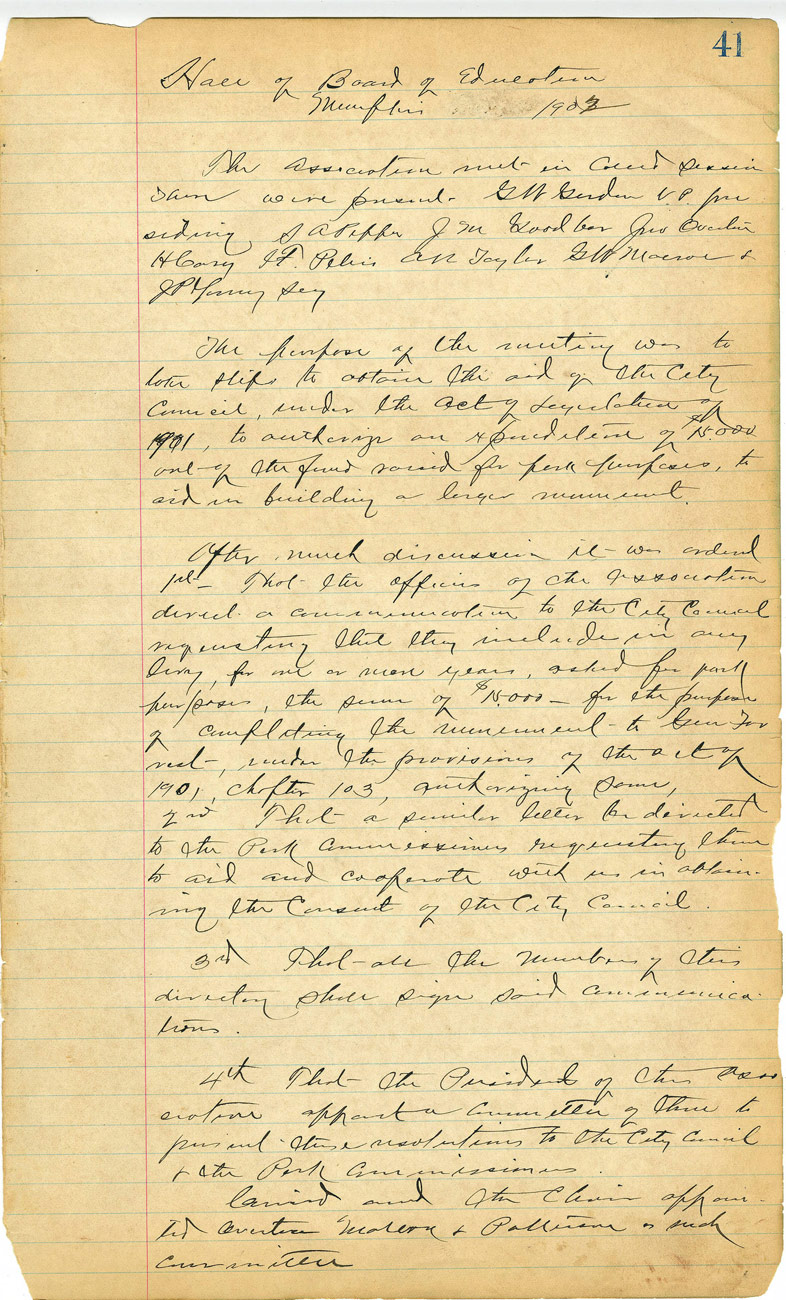 41
Hall of Board of Education
Memphis 1903
The Association met in called session
There were present G W Gordon V.P. pre
siding S A Pepper J M Goodbar Jno Overton
H Casey F. Peters A R Taylor G W Macrae &
J P Young Secy
The purpose of the meeting was to
take steps to obtain the aid of the City
Council, under the act of Legislature of
1901, to authorize an expenditure of $15.000
out of the fund raised for park purposes, to
aid in building a larger monument.
After much discussion it was ordered
1st That the officers of the association
direct a communication to the City Council
requesting that they include in any
levy, for one or more years, asked for park
purposes, the sum of $15.000 – for the purpose
of completing the monument to Gen For
rest, under the provisions of the act of
1901, chapter 103, authorizing same,
2nd That a similar letter be directed
to the Park Commissioners requesting them
to aid and cooperate with us in obtain-
ing the Consent of the City Council.
3rd That all the members of this
directory shall sign said communica-
tions.
4th That the President of this asso
ciation appoint a committee of three to
present these resolutions to the City Council
& the Park Commissioners.
Carried and the Chair appoin-
ted Overton & Patterson as such
committee